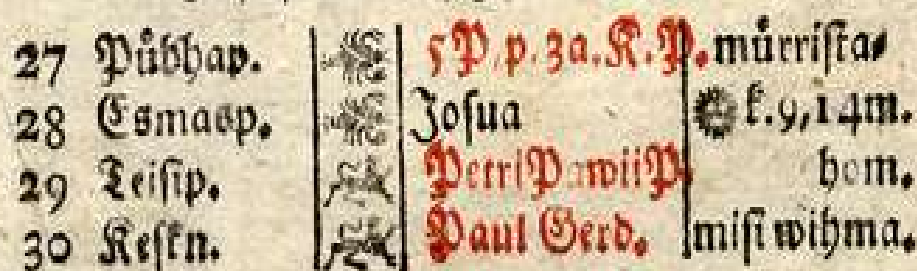 27 Pühhap. 5 P. p. 3a. K. P. mürrista⸗
28 Esmasp. Josua k. 9, 14 m.
29 Teisip. Petri Pawli P. hom.
30 Keskn. Paul Gerd. misi wihma.